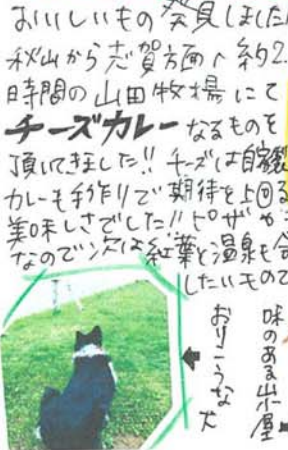 おいしいもの発見しました!
秋山から志賀方面へ約2.
時間の山田牧場にて
チーズカレーなるものを
頂いてきました!! チーズは自家製
カレーも手作りで期待を上回る
美味しさでした!! ピザや
なので次は紅葉と温泉も合
したいもので
味のある小屋
おりこうな犬